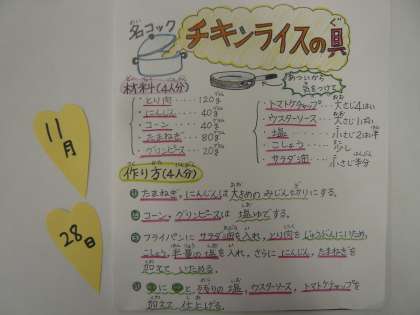 名コック
チキンライスの具
材料(4人分)
あついから気をつけて
・とり肉……120g
・にんじん……40g
・コーン……40g
・たまねぎ……80g
・グリンピース……20g
・トマトケチャップ…大さじ4はい
・ウスターソース…大さじ1ぱい
・塩…小さじ2はい半
・こしょう…少し
・サラダ油…小さじ半分
作り方(4人分)
① たまねぎ、にんじんは大きめのみじん切りにする。
② コーン、グリンピースは塩ゆでする。
③ フライパンにサラダ油を入れ、とり肉をじょうぶんにいため、
こしょう、半量の塩を入れ、さらににんじん、たまねぎを
加えていためる。
④ ③に②と残りの塩、ウスターソース、トマトケチャップを
加えて仕上げる。
11月
28日